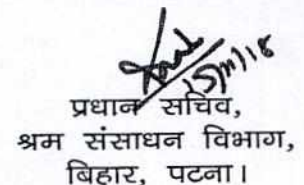 प्रधान सचिव,
श्रम संसाधन विभाग,
बिहार, पटना।